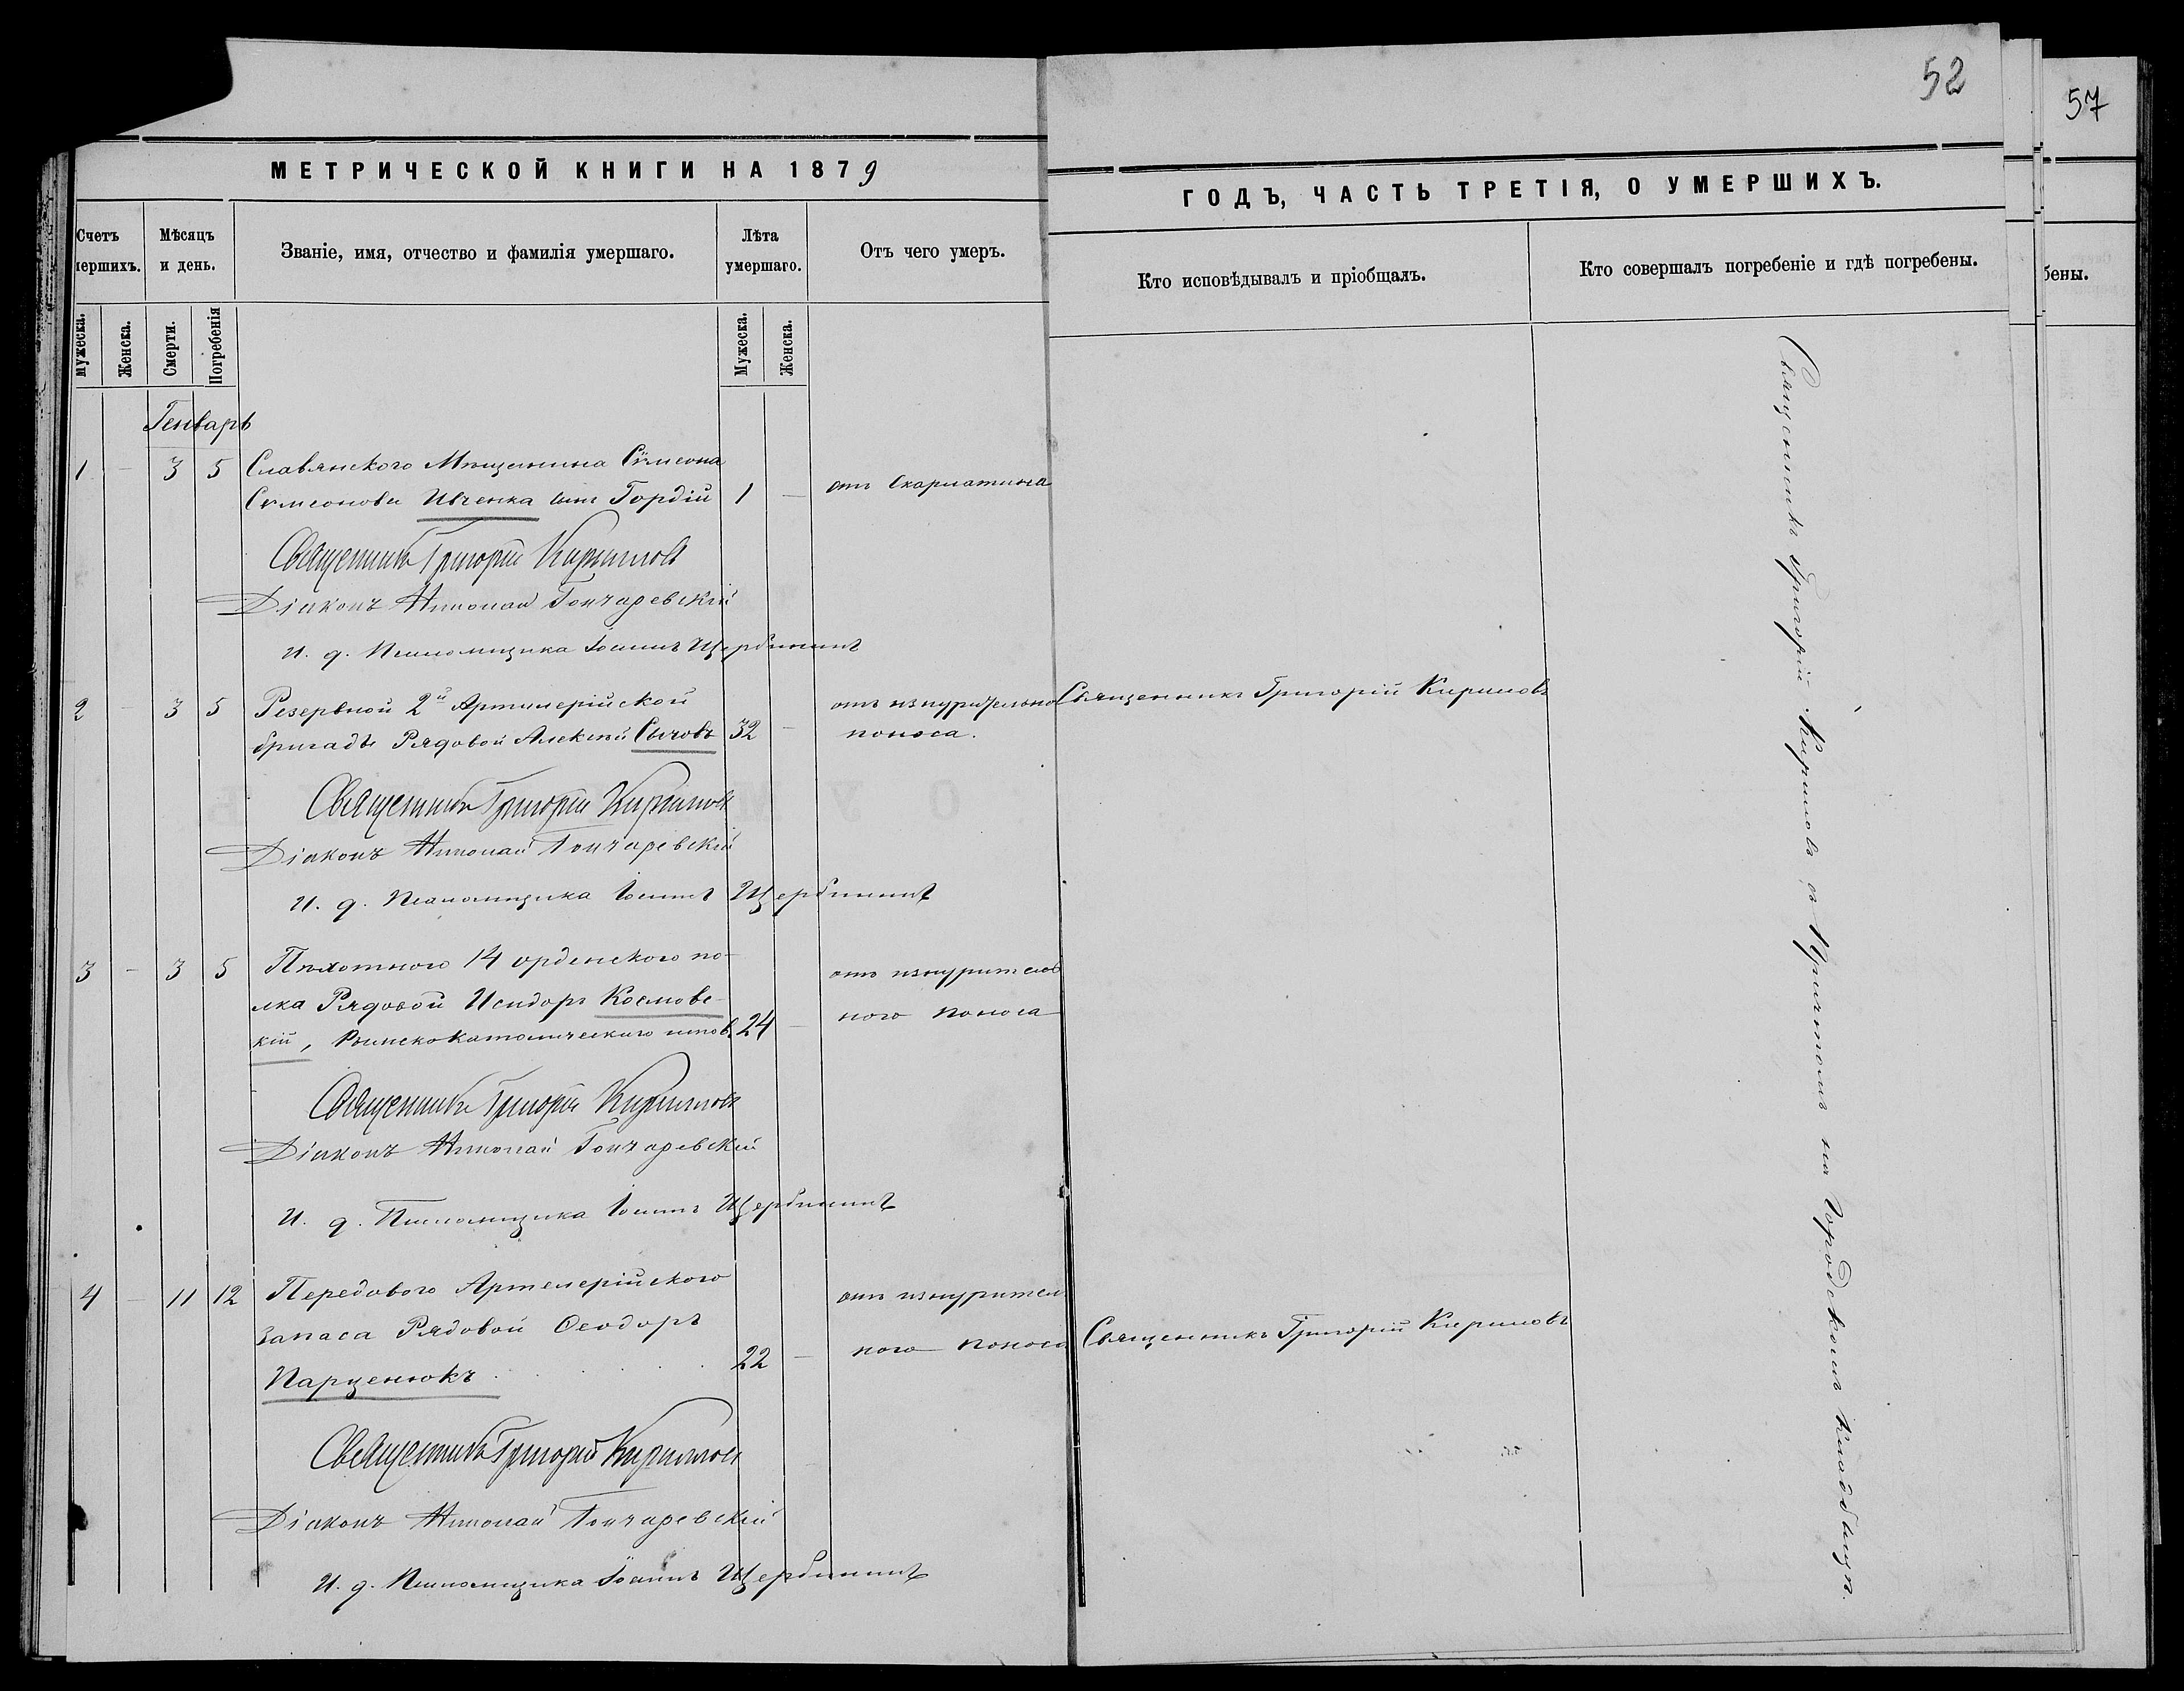 52
57
МЕТРИЧЕСКОЙ КНИГИ НА 1879
ГОДЪ, ЧАСТЬ ТРЕТІЯ, О УМЕРШИХЪ.
Счетъ мершихъ.
Мѣсяцъ и день.
Званіе, имя, отчество и фамилія умершаго.
Лѣта умершаго.
Отъ чего умеръ.
Кто исповѣдывалъ и пріобщалъ.
Кто совершалъ погребеніе и гдѣ погребены.
бены.
Мужеска.
Женска.
Смерти.
Погребенія
Мужеска.
Женска.
Генварь
1 – 3 5 Славянского Мѣщанина Сѵмеона
Сѵмеонова Ивченка сынъ Гордій 1 – отъ Скарлатина
Священникъ Григорій Кириловъ
Діаконъ Николай Гончаревскій
И. д. Псаломщика Іоаннъ Щербининъ
2 – 3 5 Резервной 2й Артилерійской отъ изнурительно Священникъ Григорій Кириловъ
бригады Рядовой Алексѣй Сычовъ 32 – поноса.
Священникъ Григорій Кириловъ
Діаконъ Николай Гончаревскій
И. д. Псаломщика Іоаннъ Щербининъ
3 – 3 5 Пѣхотного 14 орденского по- отъ изнурител
лка Рядовой Исидоръ Космовс- ного поноса
кій, Римскокатолическаго испов. 24 –
Священникъ Григорій Кириловъ
Діаконъ Николай Гончаревскій
И. д. Псаломщика Іоаннъ Щербининъ
4 – 11 12 Передового Артилерійского отъ изнурител
запаса Рядовой Ѳеодоръ ного поноса Священникъ Григорій Кириловъ
Парценюкъ . . . . . 22 –
Священникъ Григорій Кириловъ
Діаконъ Николай Гончаревскій
И. д. Псаломщика Іоаннъ Щербининъ
Священникъ Григорій Кириловъ съ Причтомъ на Городскомъ кладбищѣ.